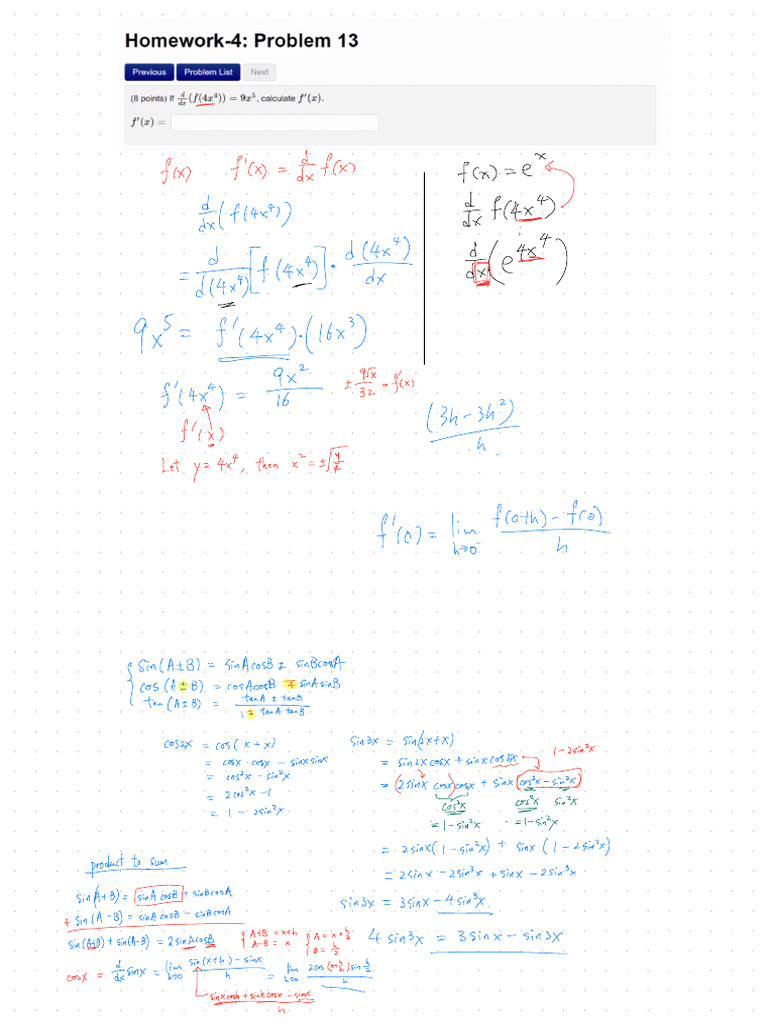 Homework-4: Problem 13
Previous Problem List Next
(8 points) If d/dx (f(4x⁴)) = 9x⁵, calculate f′(x).
f′(x) =
f(x) f'(x) = d/dx f(x)
d/dx (f(4x⁴))
= d/d(4x⁴) [f(4x⁴)] · d(4x⁴)/dx
9x⁵ = f'(4x⁴)·(16x³)
f'(4x⁴) = 9x²/16
± 9√x/32 = f'(x)
f'(x)
Let y = 4x⁴, then x² = ±√(y/4)
f(x) = eˣ
d/dx f(4x⁴)
d/dx (e^(4x⁴))
(3h - 3h²)/h
f'(0) = lim h→0⁻ (f(0+h) - f(0))/h
sin(A±B) = sinAcosB ± sinBcosA
cos(A±B) = cosAcosB ∓ sinAsinB
tan(A±B) = (tanA ± tanB)/(1 ∓ tanAtanB)
cos2x = cos(x+x)
= cosx·cosx - sinxsinx
= cos²x - sin²x
= 2cos²x - 1
= 1 - 2sin²x
sin3x = sin(2x+x)
= sin2xcosx + sinxcos2x 1-2sin²x
= (2sinx cosx)cosx + sinx(cos²x - sin²x)
cos²x cos²x sin²x
= 1-sin²x = 1-sin²x
= 2sinx(1-sin²x) + sinx(1-2sin²x)
= 2sinx - 2sin³x + sinx - 2sin³x
sin3x = 3sinx - 4sin³x
4sin³x = 3sinx - sin3x
product to sum
sin(A+B) = sinAcosB + sinBcosA
+ sin(A-B) = sinAcosB - sinBcosA
sin(A+B) + sin(A-B) = 2sinAcosB
{A+B = x+h
A-B = x
{A = x+h/2
B = h/2
cosx = d/dx sinx = lim h→0 (sin(x+h) - sinx)/h = lim h→0 2cos(x+h/2)sin(h/2)/h
(sinxcosh + sinhcosx - sinx)/h